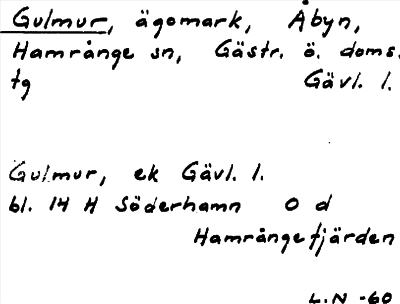 Gulmur, ägomark, Åbyn,
Hamrånge sn, Gästr. ö. doms.
tg Gävl. l.
Gulmur, ek Gävl. l.
bl. 14 H Söderhamn O d
Hamrångefjärden
L.N -60